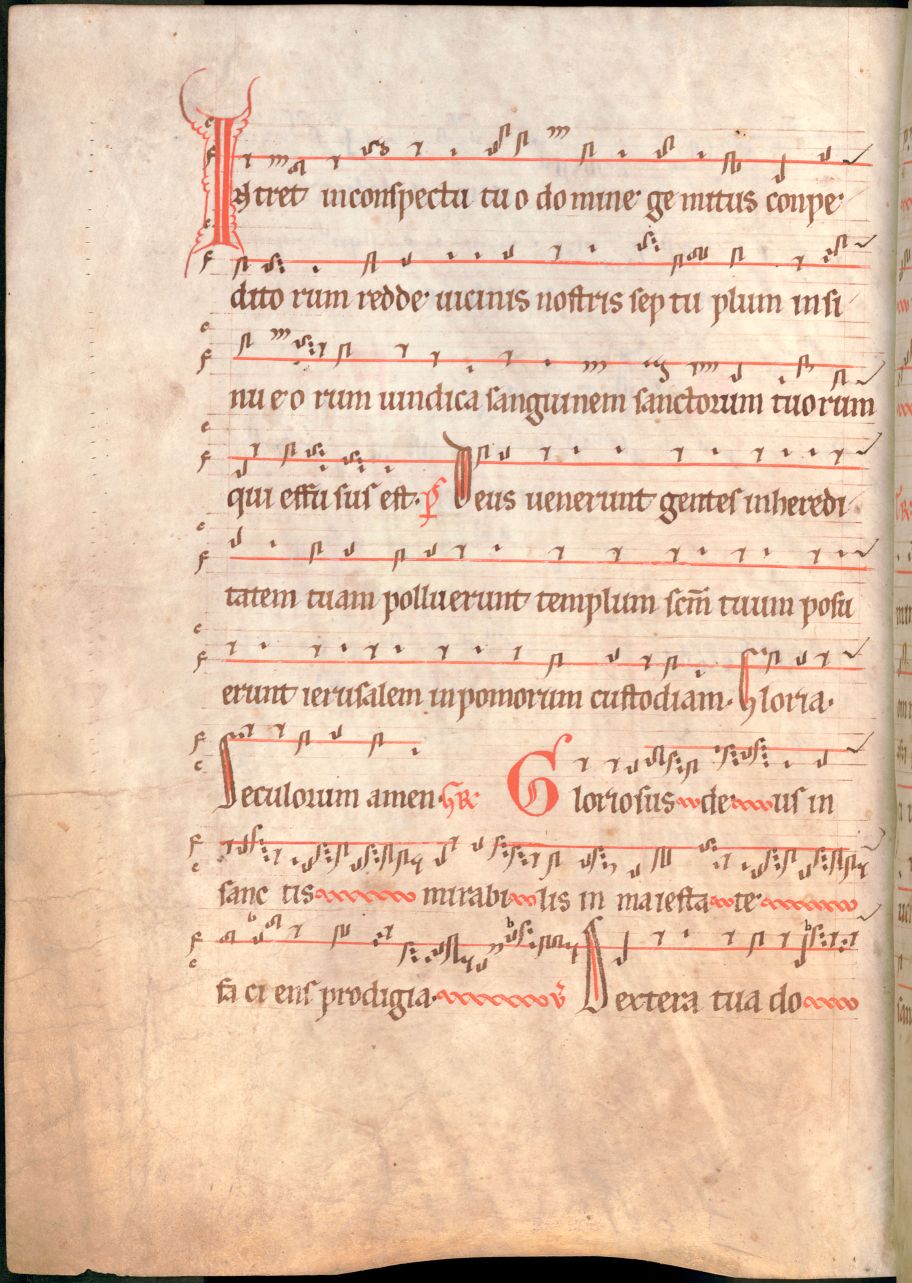 Intret in conspectu tuo domine gemitus conpe
ditorum redde uicinis nostris septuplum in si
nu eorum uindica sanguinem sanctorum tuorum
qui effusus est. ps Deus uenerunt gentes in heredi
tatem tuam polluerunt templum scm̄ tuum posu
erunt ierusalem in pomorum custodiam. Gloria.
Seculorum amen. GR Gloriosus deus in
sanctis mirabilis in maiestate
faciens prodigia. v Dextera tua do